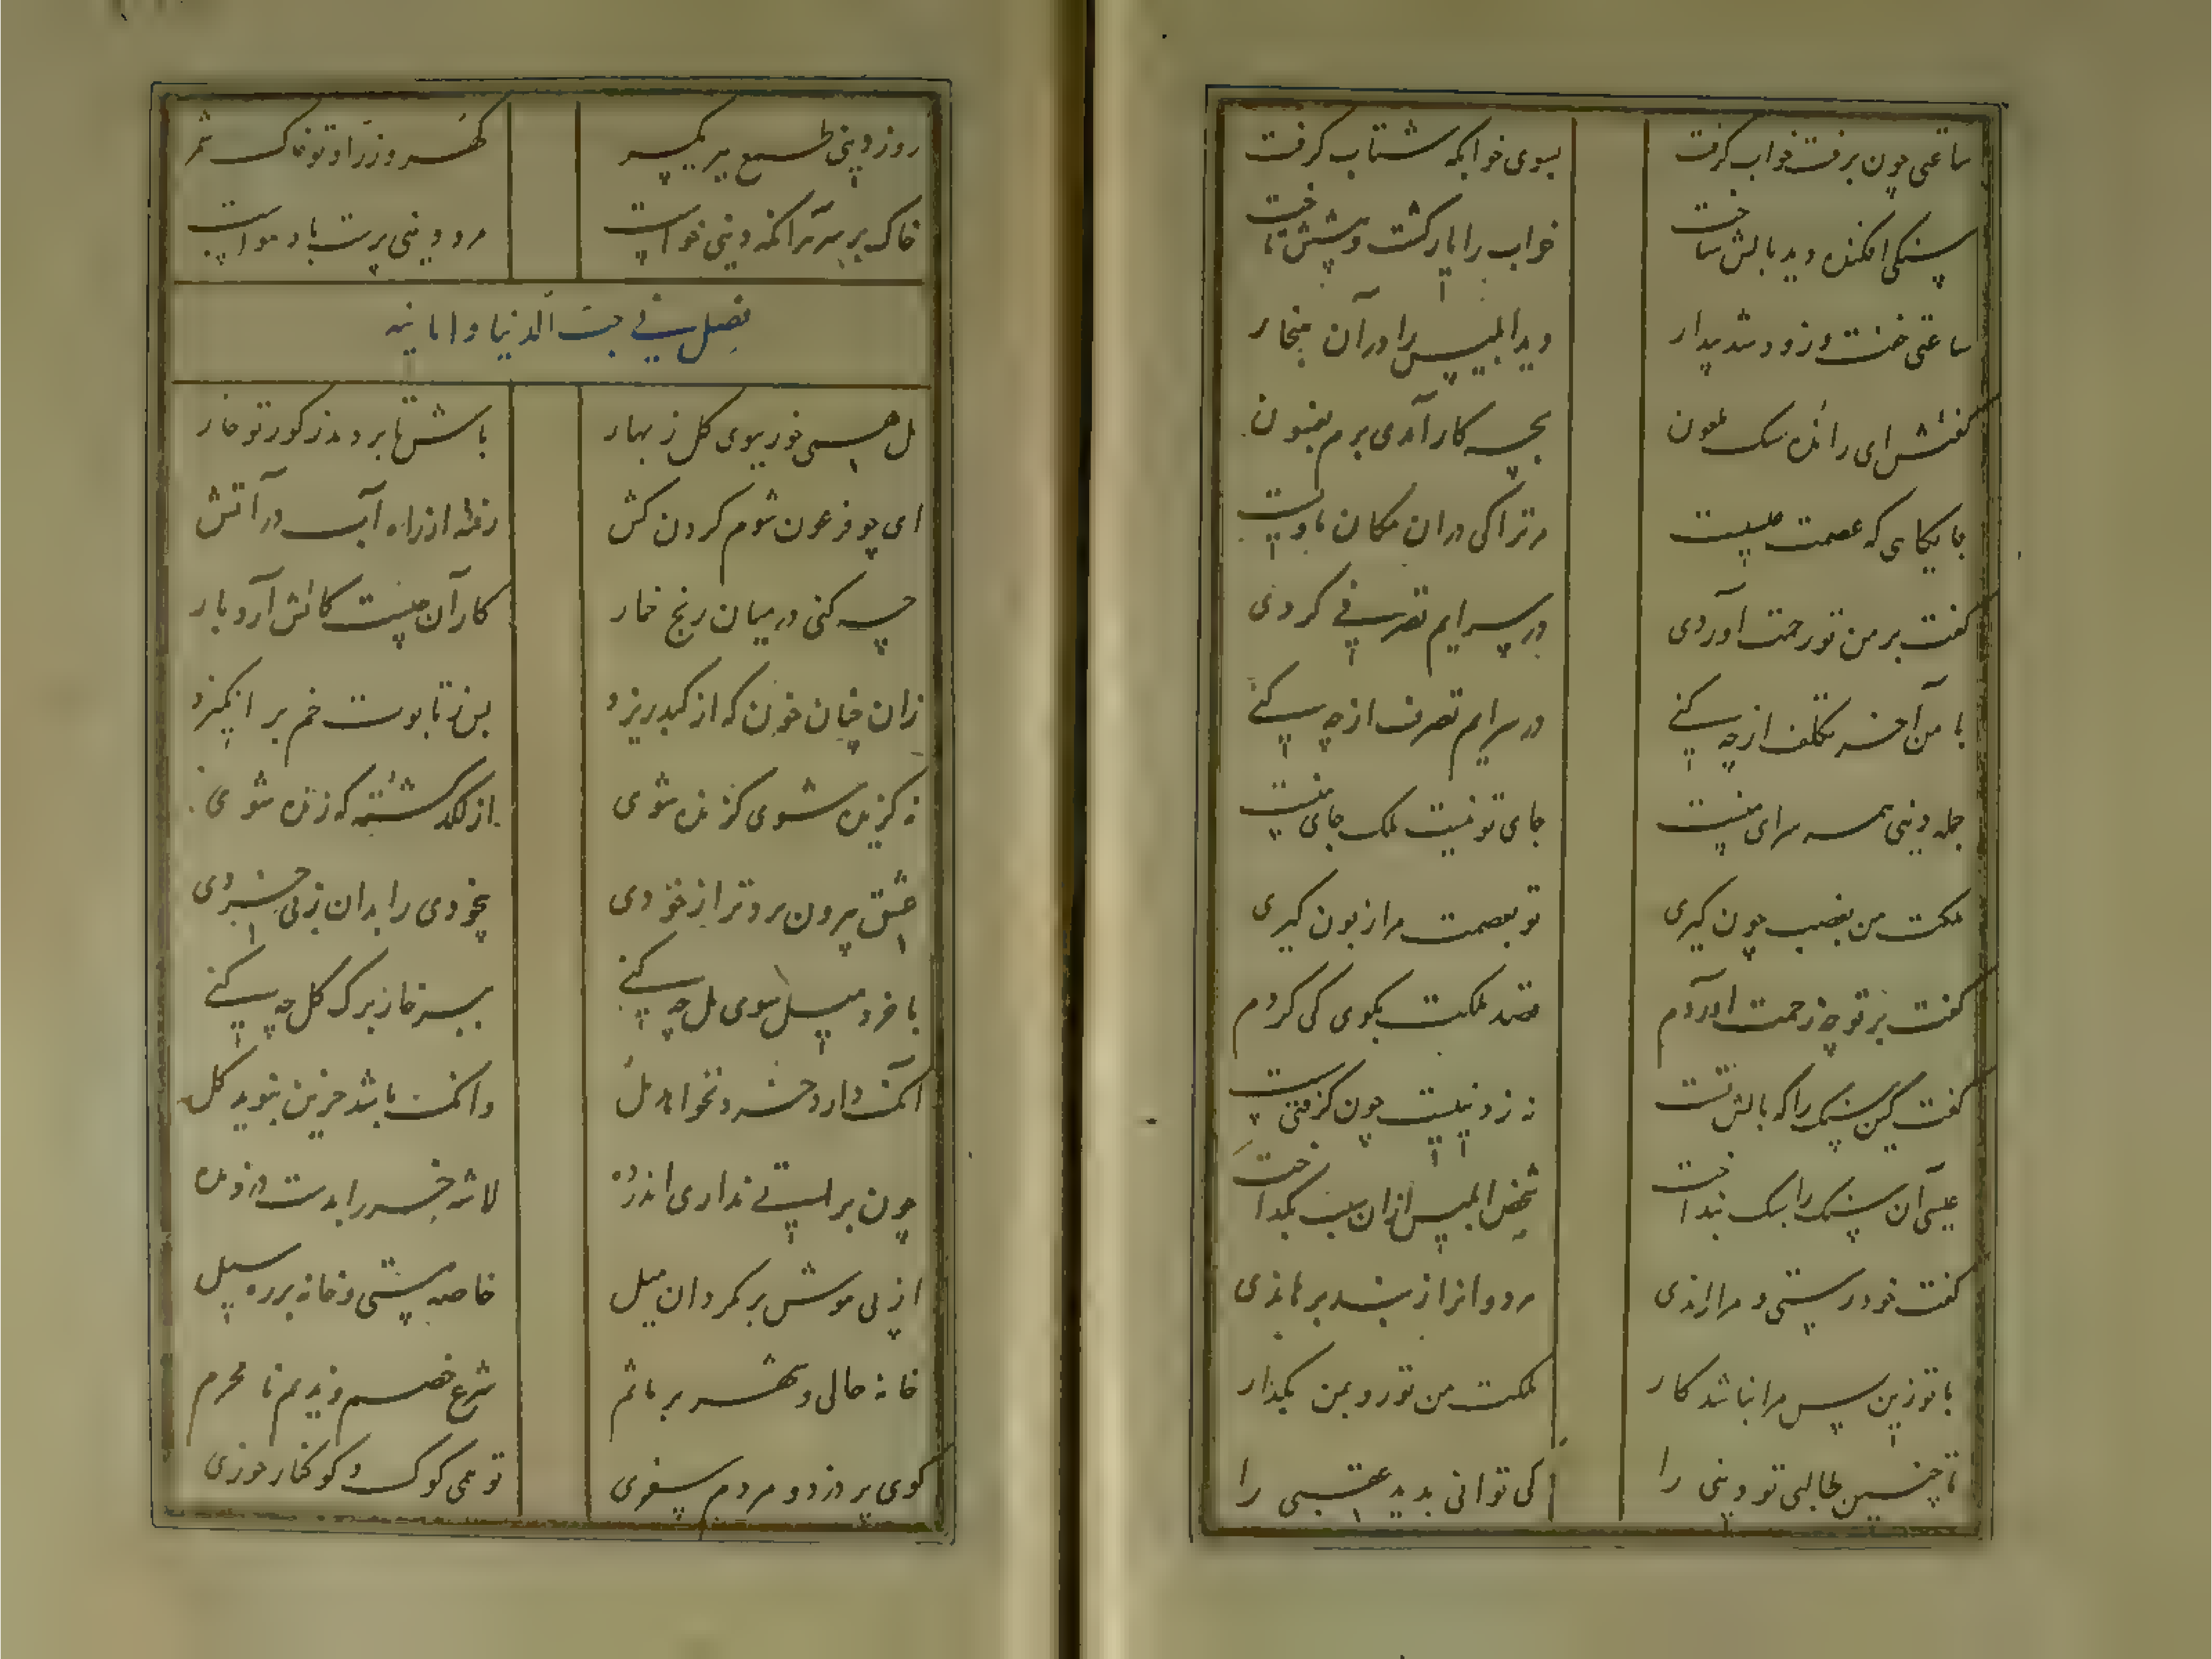 ساعتی چون برفت خواب گرفت بسوی خوابگه شتاب گرفت
سنگی افکنده دید بالش ساخت خواب را یار گشت و پیش نتاخت
ساعتی خفت و زود شد بیدار دید ابلیس را در آن هنجار
گفتش ای رانده سگ ملعون بچه کار آمدی برم بفسون
جایگاهی که عصمت عیسیست مر ترا کی در ان مکان ماویست
گفت بر من تو زحمت آوردی در سرایم تصرفی کردی
با من آخر تکلف از چه کنی در سرایم تصرف از چه کنی
جمله دینی همه سرای منست جای تو نیست ملک جای منست
ملکت من بغصب چون گیری تو بعصمت مرا زبون گیری
گفت بر تو چه زحمت آوردم قصد ملکت بگوی کی کردم
گفت کین سنگ را که بالش تست نه ز دنییست چون گرفتی سست
عیسی آن سنگ را سبک بنداخت شخص ابلیس ازان سبب بگداخت
گفت خود رستی و مرا راندی هر دوانرا ز بند برهاندی
با تو زین پس مرا نباشد کار ملکت من تو رو بمن بگذار
تا چنین طالبی تو دینی را کی توانی بدید عقبی را
روز دینی طمع ببر یکسر گهر و زر او تو خاک شمر
خاک بر سر هر آنکه دینی خواست مرد دینی پرست باد هواست
فصل فی حب الدنیا و امانیه
مل همی خور ببوی گل ز بهار باش تا بر دمد ز گور تو خار
ای چو فرعون شوم گردن کش رفته از راه آب در آتش
چه کنی در میان رنج خمار کار آن می که آنش آرد بار
زان چنان خون که از کبد ریزد بس ز تابوت خم بر انگیزد
نه گزیده شوی گزنده شوی از لگد کشته که زنده شوی
عشق بیرون برد ترا از خودی بیخودی را بدان ز بی خردی
با خرد میل سوی مل چه کنی بسر خار برگ گل چه کنی
آنکت دارد خرد نخواهد مل وانکت باشد حزین نبوید گل
چون براستی نداری اندر ده لاشه خر را بدست دزد مده
از پی موش بر مگردان میل خاصه مستی و خانه بر ره سیل
خانه خالی و شهر بر ماتم شرع خصم و ندیم نامحرم
گوی پر دزد و مردم سفری تو همی کوک و کوکنار خوری